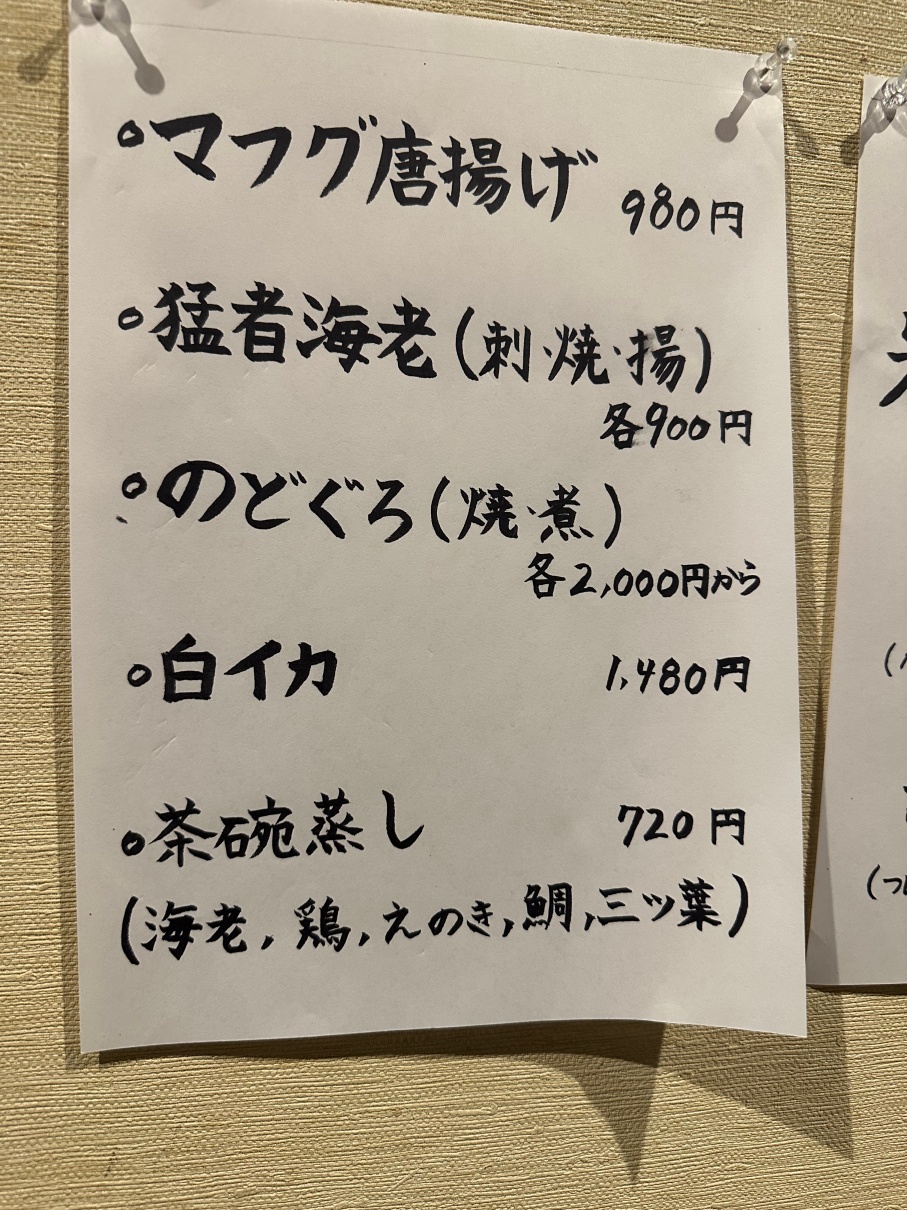 ○マフグ唐揚げ 980円
○猛者海老(刺・焼・揚)
各900円
○のどぐろ(焼・煮)
各2,000円から
○白イカ 1,480円
○茶碗蒸し 720円
(海老,鶏,えのき,鯛,三ツ葉)